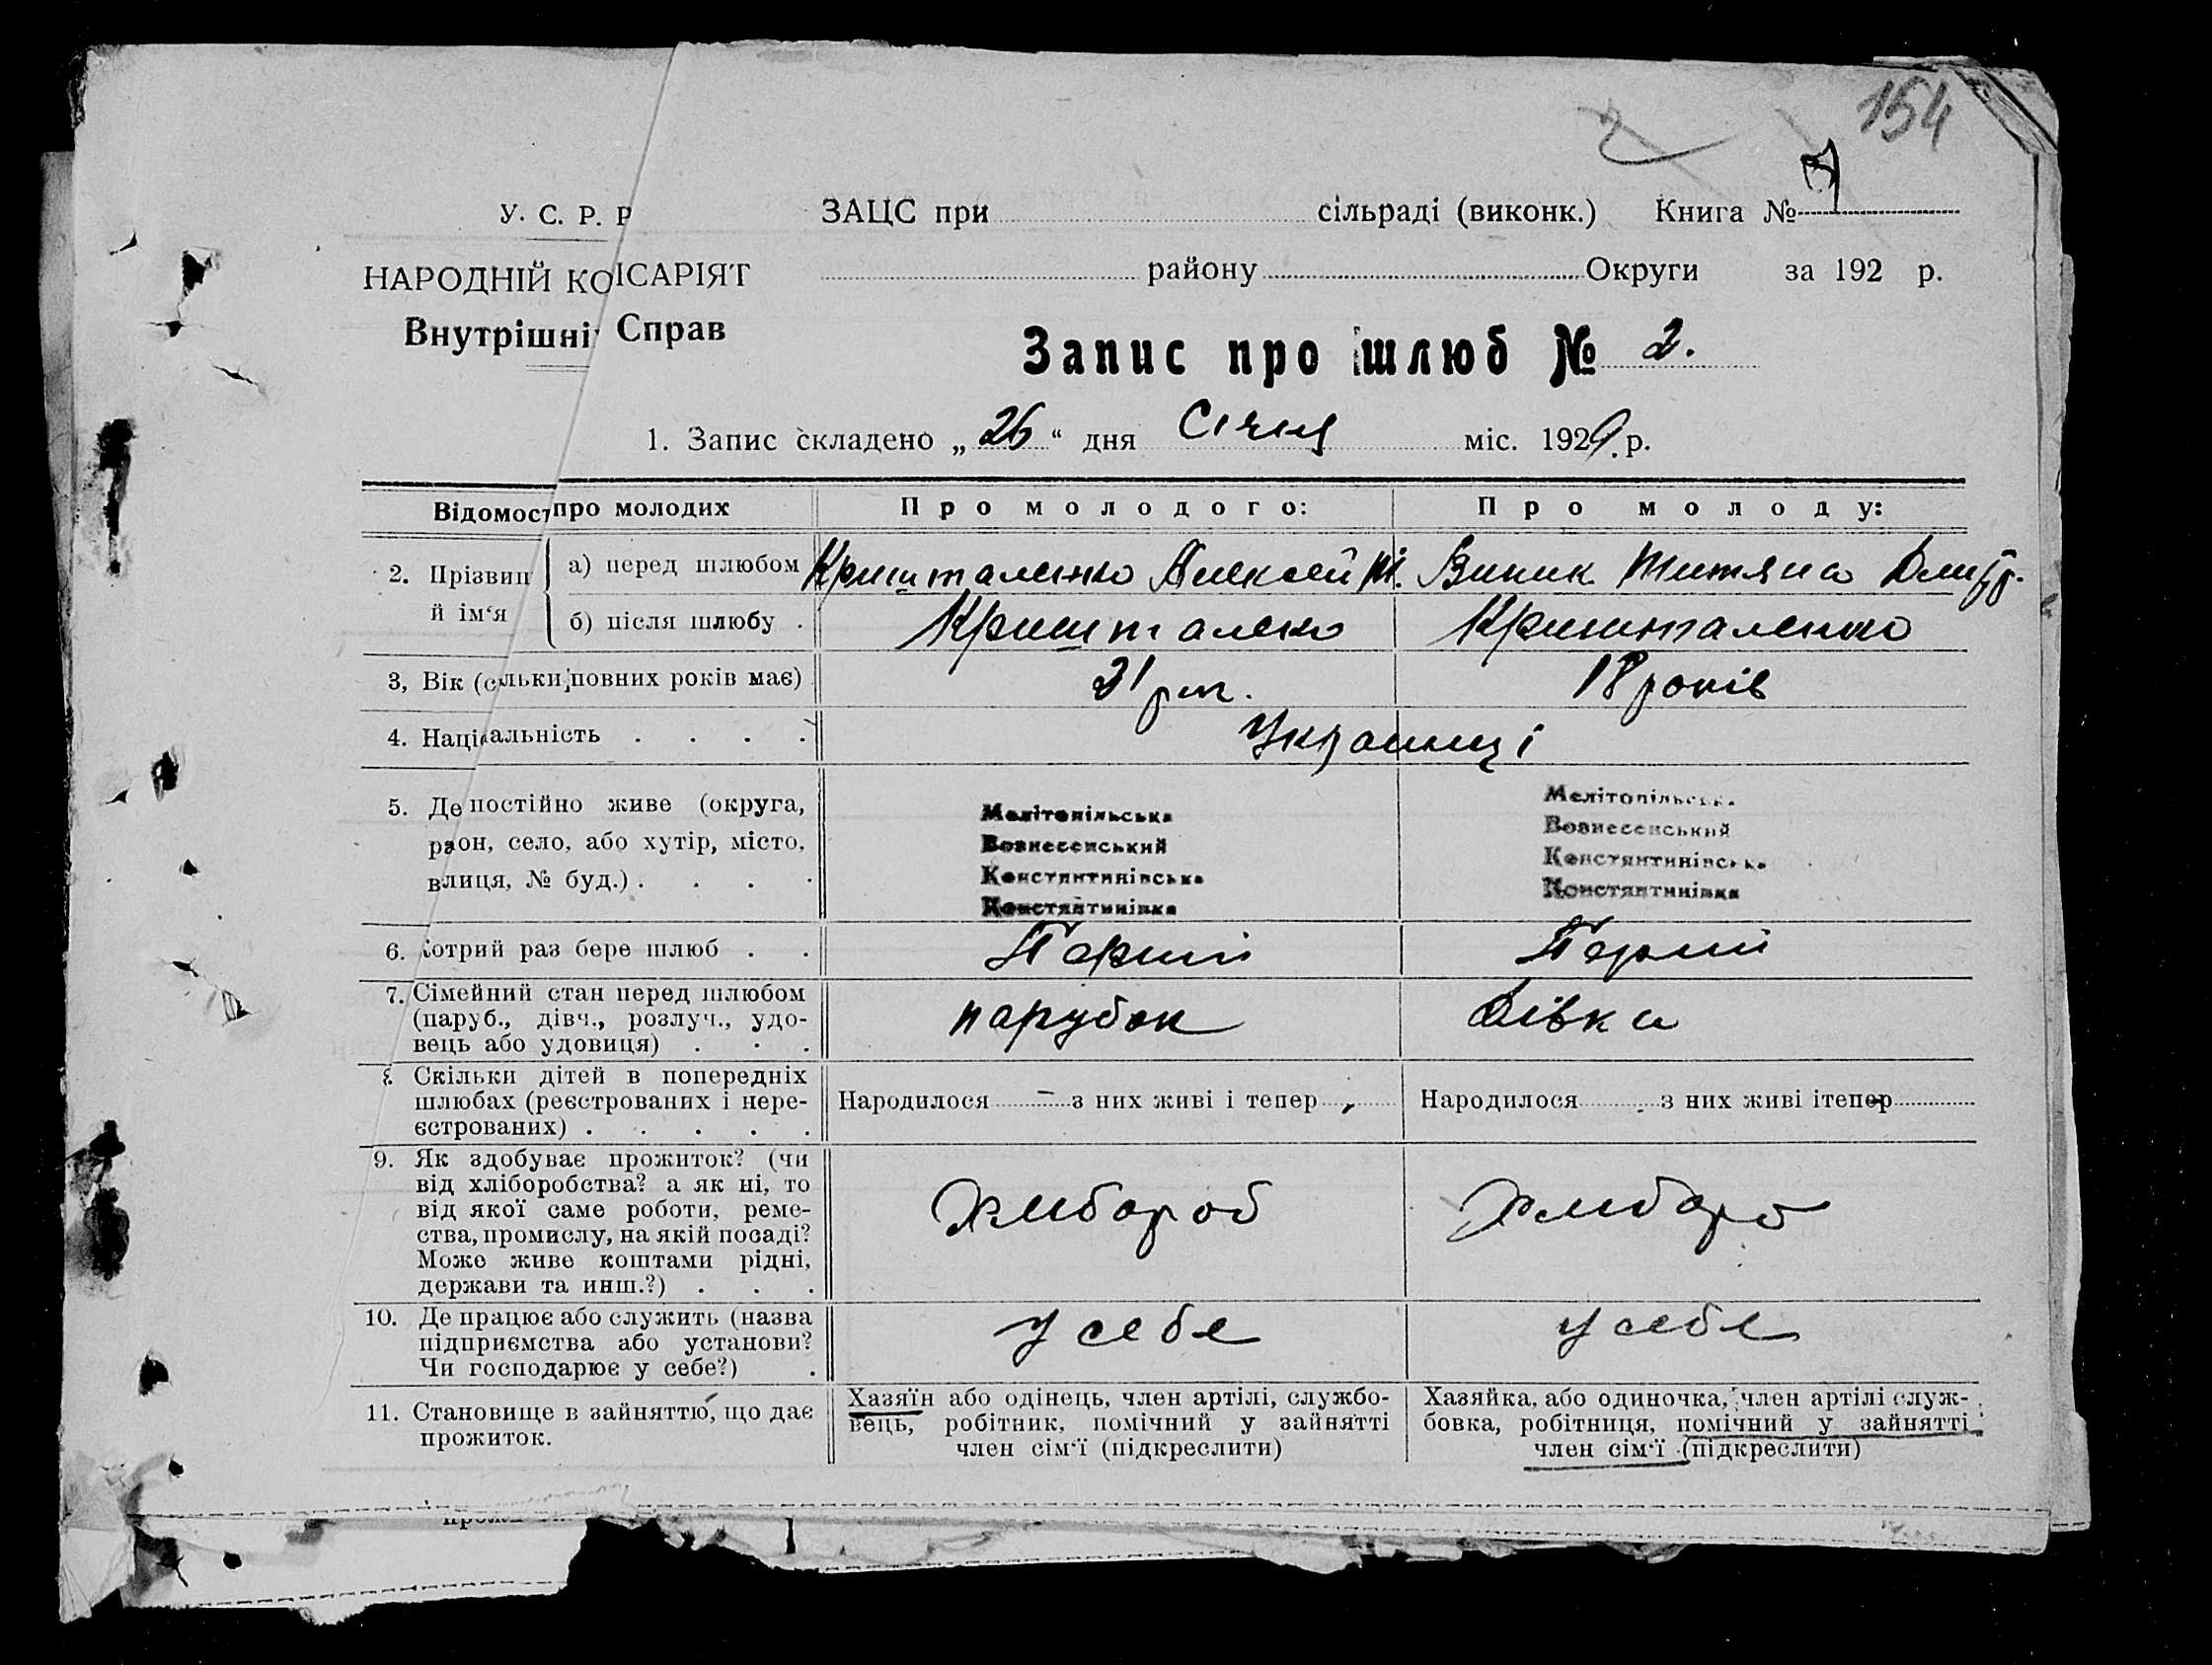 154
У. С. Р. Р
ЗАЦС при сільраді (виконк.) Книга №
НАРОДНІЙ КОІСАРІЯТ
району Округи за 192 р.
Внутрішні Справ
Запис про шлюб № 2.
1. Запис складено „ 26 “ дня Січня міс. 1929 р.
Відомост про молодих
Про молодого:
Про молоду:
2. Прізвищ й ім‘я
а) перед шлюбом
Кришталенко Алексей
Виник Титяна Дмитр.
б) після шлюбу .
Кришталеко
Кришталенко
3, Вік (сльки повних років має)
21 рік.
18 років
4. Націальність . . . .
Українці
5. Де постійно живе (округа,
раон, село, або хутір, місто,
влиця, № буд.) . . . .
Мелітопільська
Вознесенський
Константинівська
Константинівка
Мелітопільська
Вознесенський
Константинівська
Константинівка
6. Котрий раз бере шлюб . .
Перший
Перший
7. Сімейний стан перед шлюбом
(паруб., дівч., розлуч., удо-
вець або удовиця) . . .
парубок
дівка
8. Скільки дітей в попередніх
шлюбах (реєстрованих і нере-
єстрованих) . . . . .
Народилося – з них живі і тепер
Народилося з них живі ітепер
9. Як здобуває прожиток? (чи
від хліборобства? а як ні, то
від якої саме роботи, реме-
ства, промислу, на якій посаді?
Може живе коштами рідні,
держави та инш.?) . . .
Хлибороб
Хлиборо
10. Де працює або служить (назва
підприємства або установи?
Чи господарює у себе?) .
У себе
У себе
11. Становище в зайняттю, що дає
прожиток.
Хазяїн або одінець, член артілі, службо-
вець, робітник, помічний у зайнятті
член сім‘ї (підкреслити)
Хазяйка, або одиночка, член артілі служ-
бовка, робітниця, помічний у зайнятті
член сім‘ї (підкреслити)